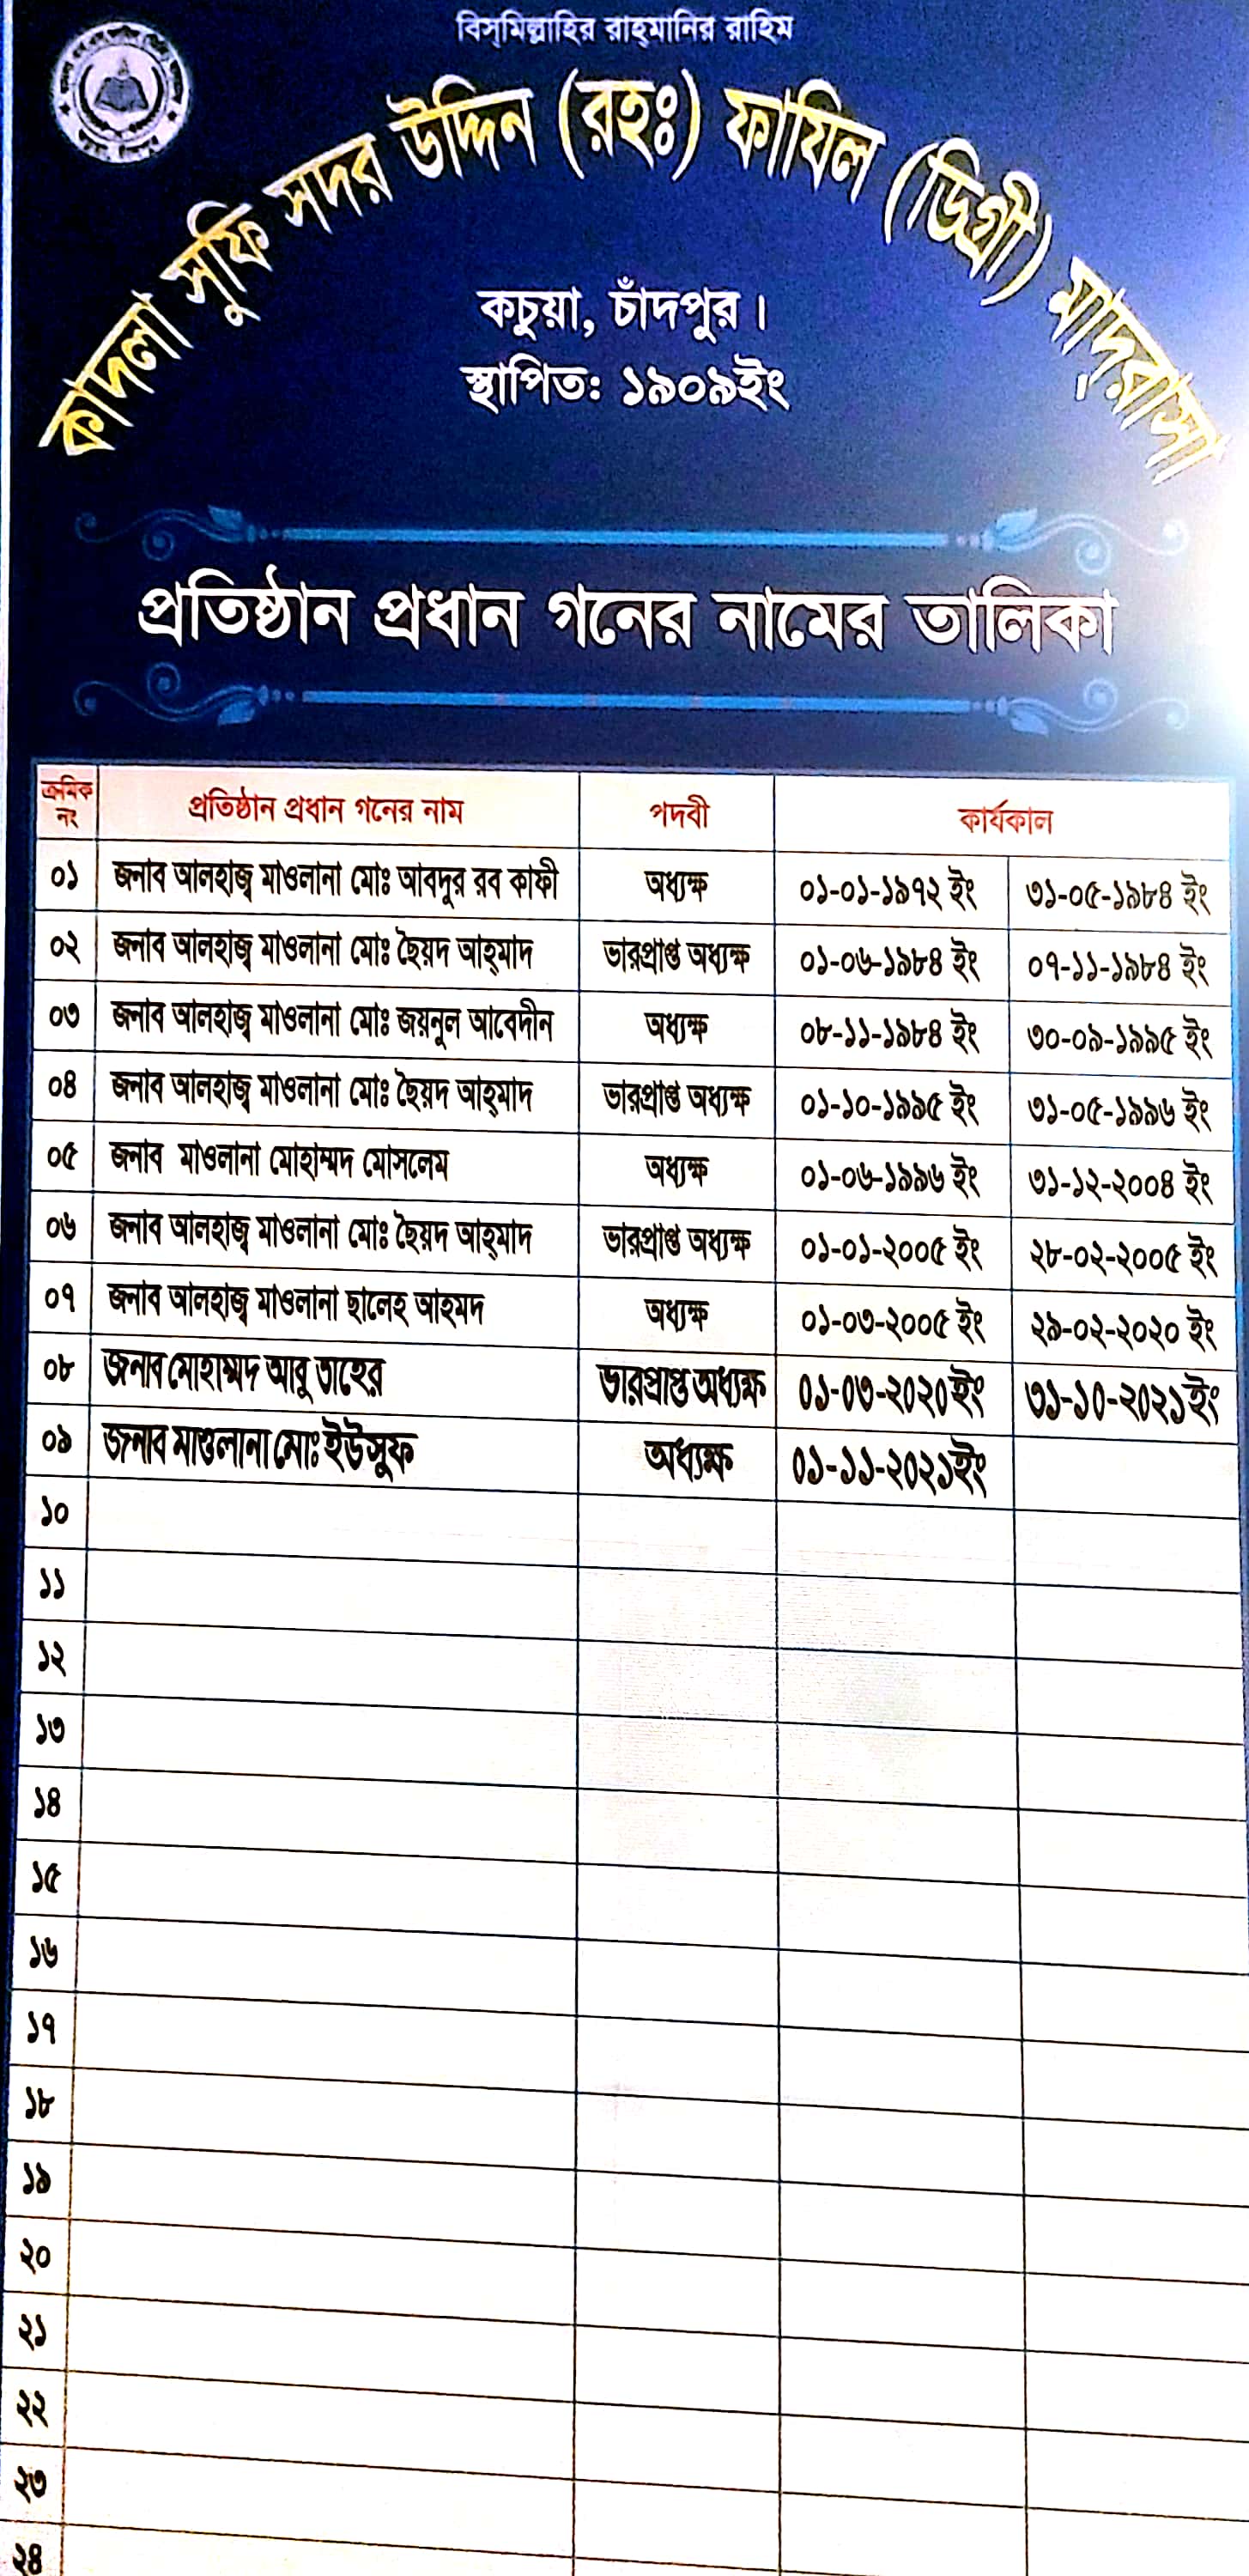 বিস্‌মিল্লাহির রাহ্‌মানির রাহিম
কাদলা সুফি সদর উদ্দিন (রহঃ) ফাযিল (ডিগ্রী) মাদ্‌রাসা
কচুয়া, চাঁদপুর।
স্থাপিত: ১৯০৯ইং
প্রতিষ্ঠান প্রধান গনের নামের তালিকা
ক্রমিক নং প্রতিষ্ঠান প্রধান গনের নাম পদবী কার্যকাল
০১ জনাব আলহাজ্ব মাওলানা মোঃ আবদুর রব কাফী অধ্যক্ষ ০১-০১-১৯৭২ ইং ৩১-০৫-১৯৮৪ ইং
০২ জনাব আলহাজ্ব মাওলানা মোঃ ছৈয়দ আহ্‌মাদ ভারপ্রাপ্ত অধ্যক্ষ ০১-০৬-১৯৮৪ ইং ০৭-১১-১৯৮৪ ইং
০৩ জনাব আলহাজ্ব মাওলানা মোঃ জয়নুল আবেদীন অধ্যক্ষ ০৮-১১-১৯৮৪ ইং ৩০-০৯-১৯৯৫ ইং
০৪ জনাব আলহাজ্ব মাওলানা মোঃ ছৈয়দ আহ্‌মাদ ভারপ্রাপ্ত অধ্যক্ষ ০১-১০-১৯৯৫ ইং ৩১-০৫-১৯৯৬ ইং
০৫ জনাব মাওলানা মোহাম্মদ মোসলেম অধ্যক্ষ ০১-০৬-১৯৯৬ ইং ৩১-১২-২০০৪ ইং
০৬ জনাব আলহাজ্ব মাওলানা মোঃ ছৈয়দ আহ্‌মাদ ভারপ্রাপ্ত অধ্যক্ষ ০১-০১-২০০৫ ইং ২৮-০২-২০০৫ ইং
০৭ জনাব আলহাজ্ব মাওলানা ছালেহ আহমদ অধ্যক্ষ ০১-০৩-২০০৫ ইং ২৯-০২-২০২০ ইং
০৮ জনাব মোহাম্মদ আবু তাহের ভারপ্রাপ্ত অধ্যক্ষ ০১-০৩-২০২০ইং ৩১-১০-২০২১ইং
০৯ জনাব মাওলানা মোঃ ইউসুফ অধ্যক্ষ ০১-১১-২০২১ইং
১০
১১
১২
১৩
১৪
১৫
১৬
১৭
১৮
১৯
২০
২১
২২
২৩
২৪